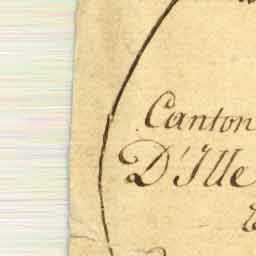 Canton
D'Ille